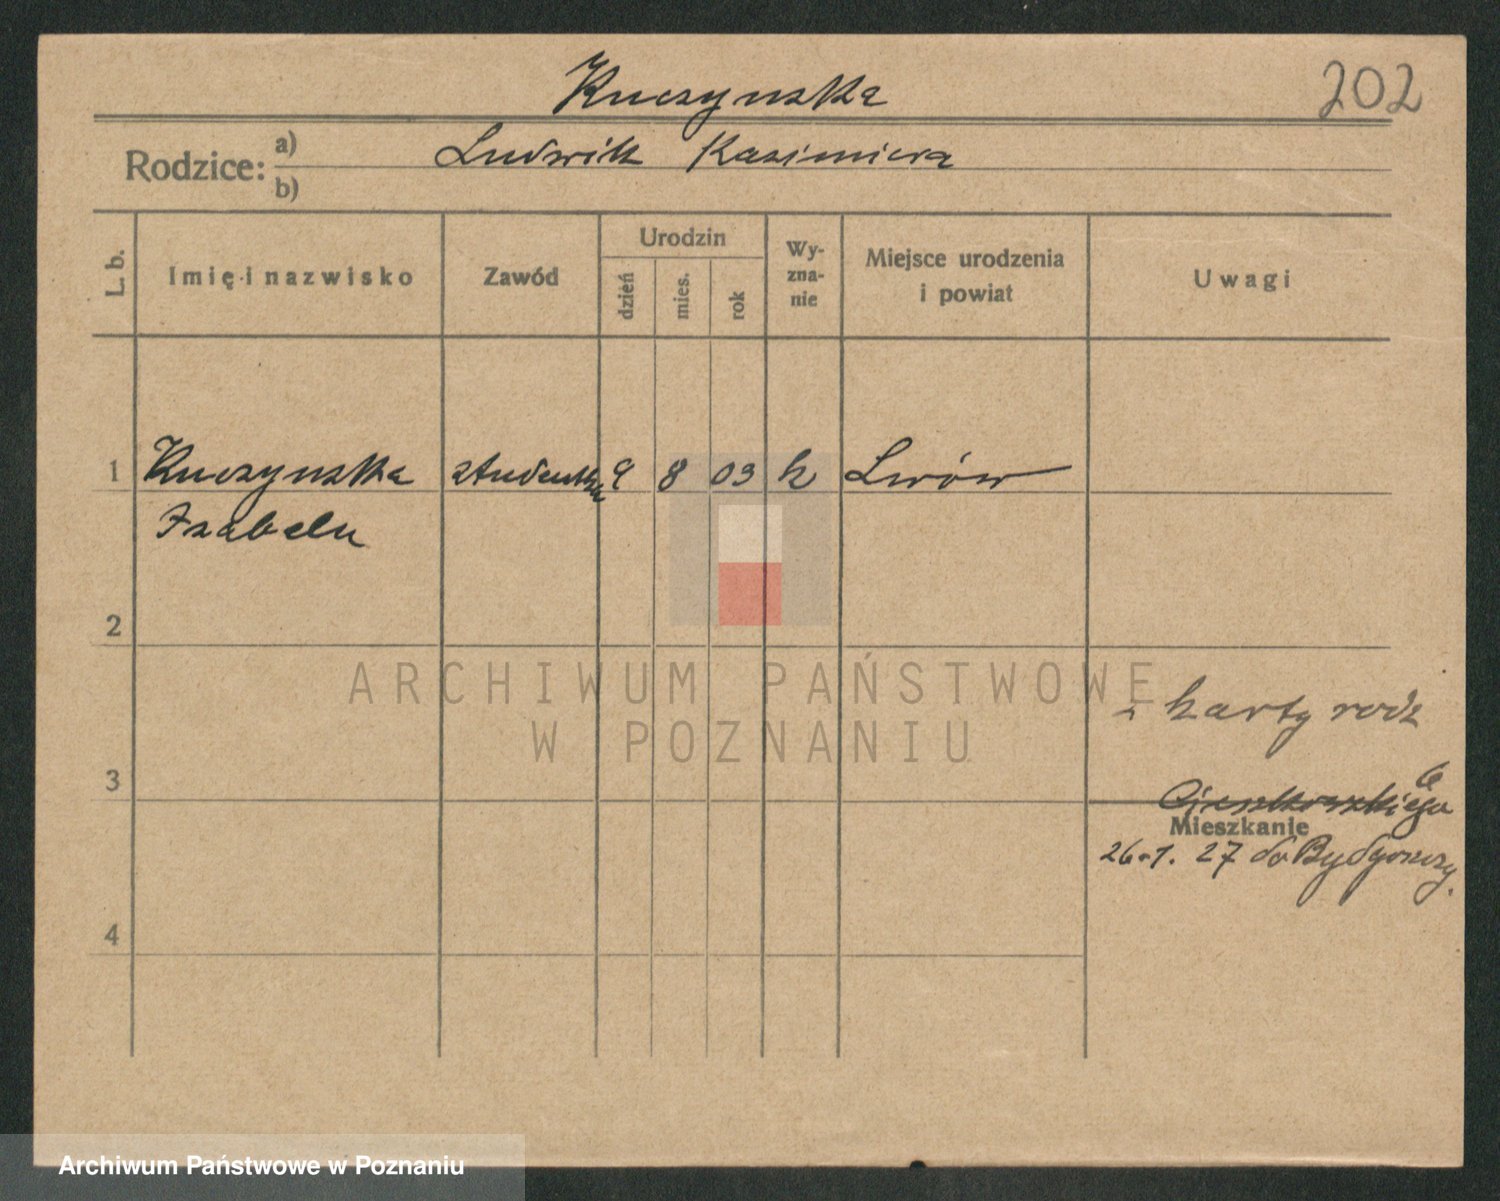 Kuczynska
202
Rodzice: a) Ludwik Kazimiera
b)
L. b.
Imię i nazwisko
Zawód
Urodzin
dzień
mies.
rok
Wy-
zna-
nie
Miejsce urodzenia
i powiat
Uwagi
1 Kuczynska studentka 9 8 03 k Lwów
Izabela
2
z karty rodz
3
Cieszkowskiego 6
Mieszkanie
26.1.27 do Bydgoszczy.
4
ARCHIWUM PAŃSTWOWE
W POZNANIU
Archiwum Państwowe w Poznaniu